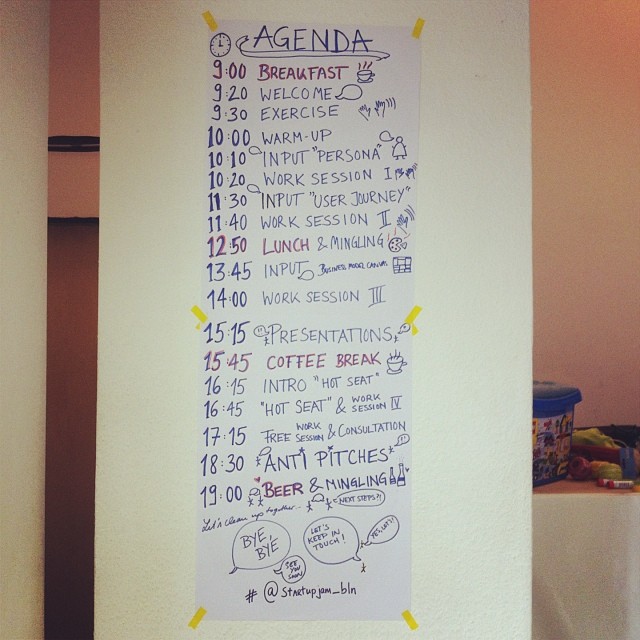 AGENDA
9:00 BREAKFAST
9:20 WELCOME
9:30 EXERCISE
10:00 WARM-UP
10:10 INPUT "PERSONA"
10:20 WORK SESSION I
11:30 INPUT "USER JOURNEY"
11:40 WORK SESSION II
12:50 LUNCH & MINGLING
13:45 INPUT BUSINESS MODEL CANVAS
14:00 WORK SESSION III
15:15 PRESENTATIONS
15:45 COFFEE BREAK
16:15 INTRO "HOT SEAT"
16:45 "HOT SEAT" & WORK SESSION IV
17:15 FREE WORK SESSION & CONSULTATION
18:30 ANTI PITCHES
19:00 BEER & MINGLING
Let's clean up together...
NEXT STEPS?!
BYE, BYE
SEE YOU SOON
LET'S KEEP IN TOUCH!
YES, LET'S!
# @startupjam_bln